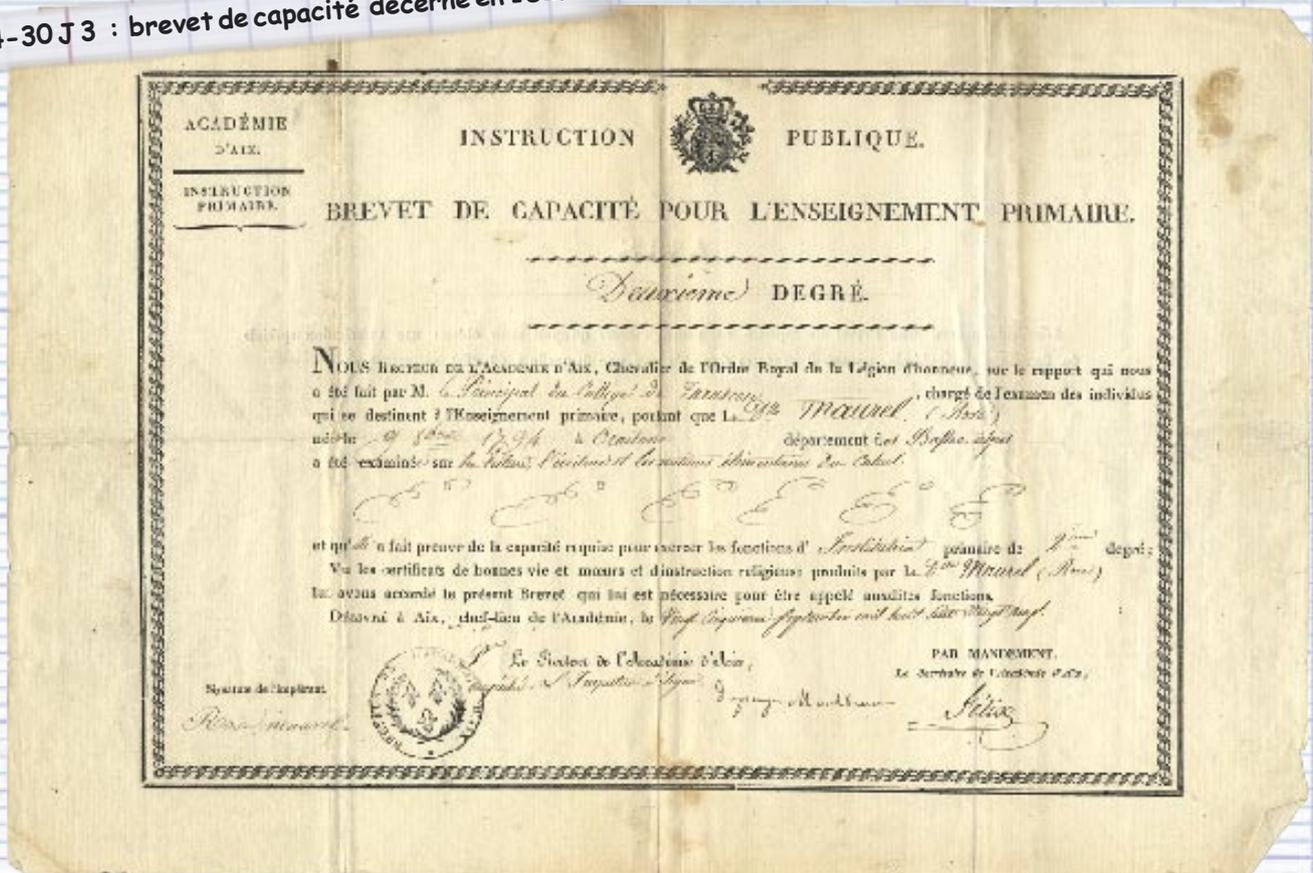 -30 J 3 : brevet de capacité décerné en
ACADÉMIE
D'AIX.
INSTRUCTION
PRIMAIRE.
INSTRUCTION PUBLIQUE.
BREVET DE CAPACITÉ POUR L'ENSEIGNEMENT PRIMAIRE.
Deuxième DEGRÉ.
NOUS RECTEUR DE L'ACADÉMIE D'AIX, Chevalier de l'Ordre Royal de la Légion d'honneur, sur le rapport qui nous
a été fait par M. le Principal du Collège de , chargé de l'examen des individus
qui se destinent à l'Enseignement primaire, portant que la Dlle Maurel (Rose)
née le 9 8bre 1794 à département des Basses alpes
a été examinée sur la lecture, l'écriture et les notions élémentaires du Calcul.
et qu'elle a fait preuve de la capacité requise pour exercer les fonctions d' Institutrice primaire de 2ème degré;
Vu les certificats de bonnes vie et mœurs et d'instruction religieuse produits par la Dlle Maurel (Rose)
lui avons accordé le présent Brevet qui lui est nécessaire pour être appelé auxdites fonctions.
Délivré à Aix, chef-lieu de l'Académie, le Vingt cinquième Septembre mil huit cent vingt neuf.
Le Recteur de l'Académie d'Aix,
L'Inspecteur
PAR MANDEMENT.
Le Secrétaire de l'Académie d'Aix,
Félix
Signature de l'impétrant
Rose maurel